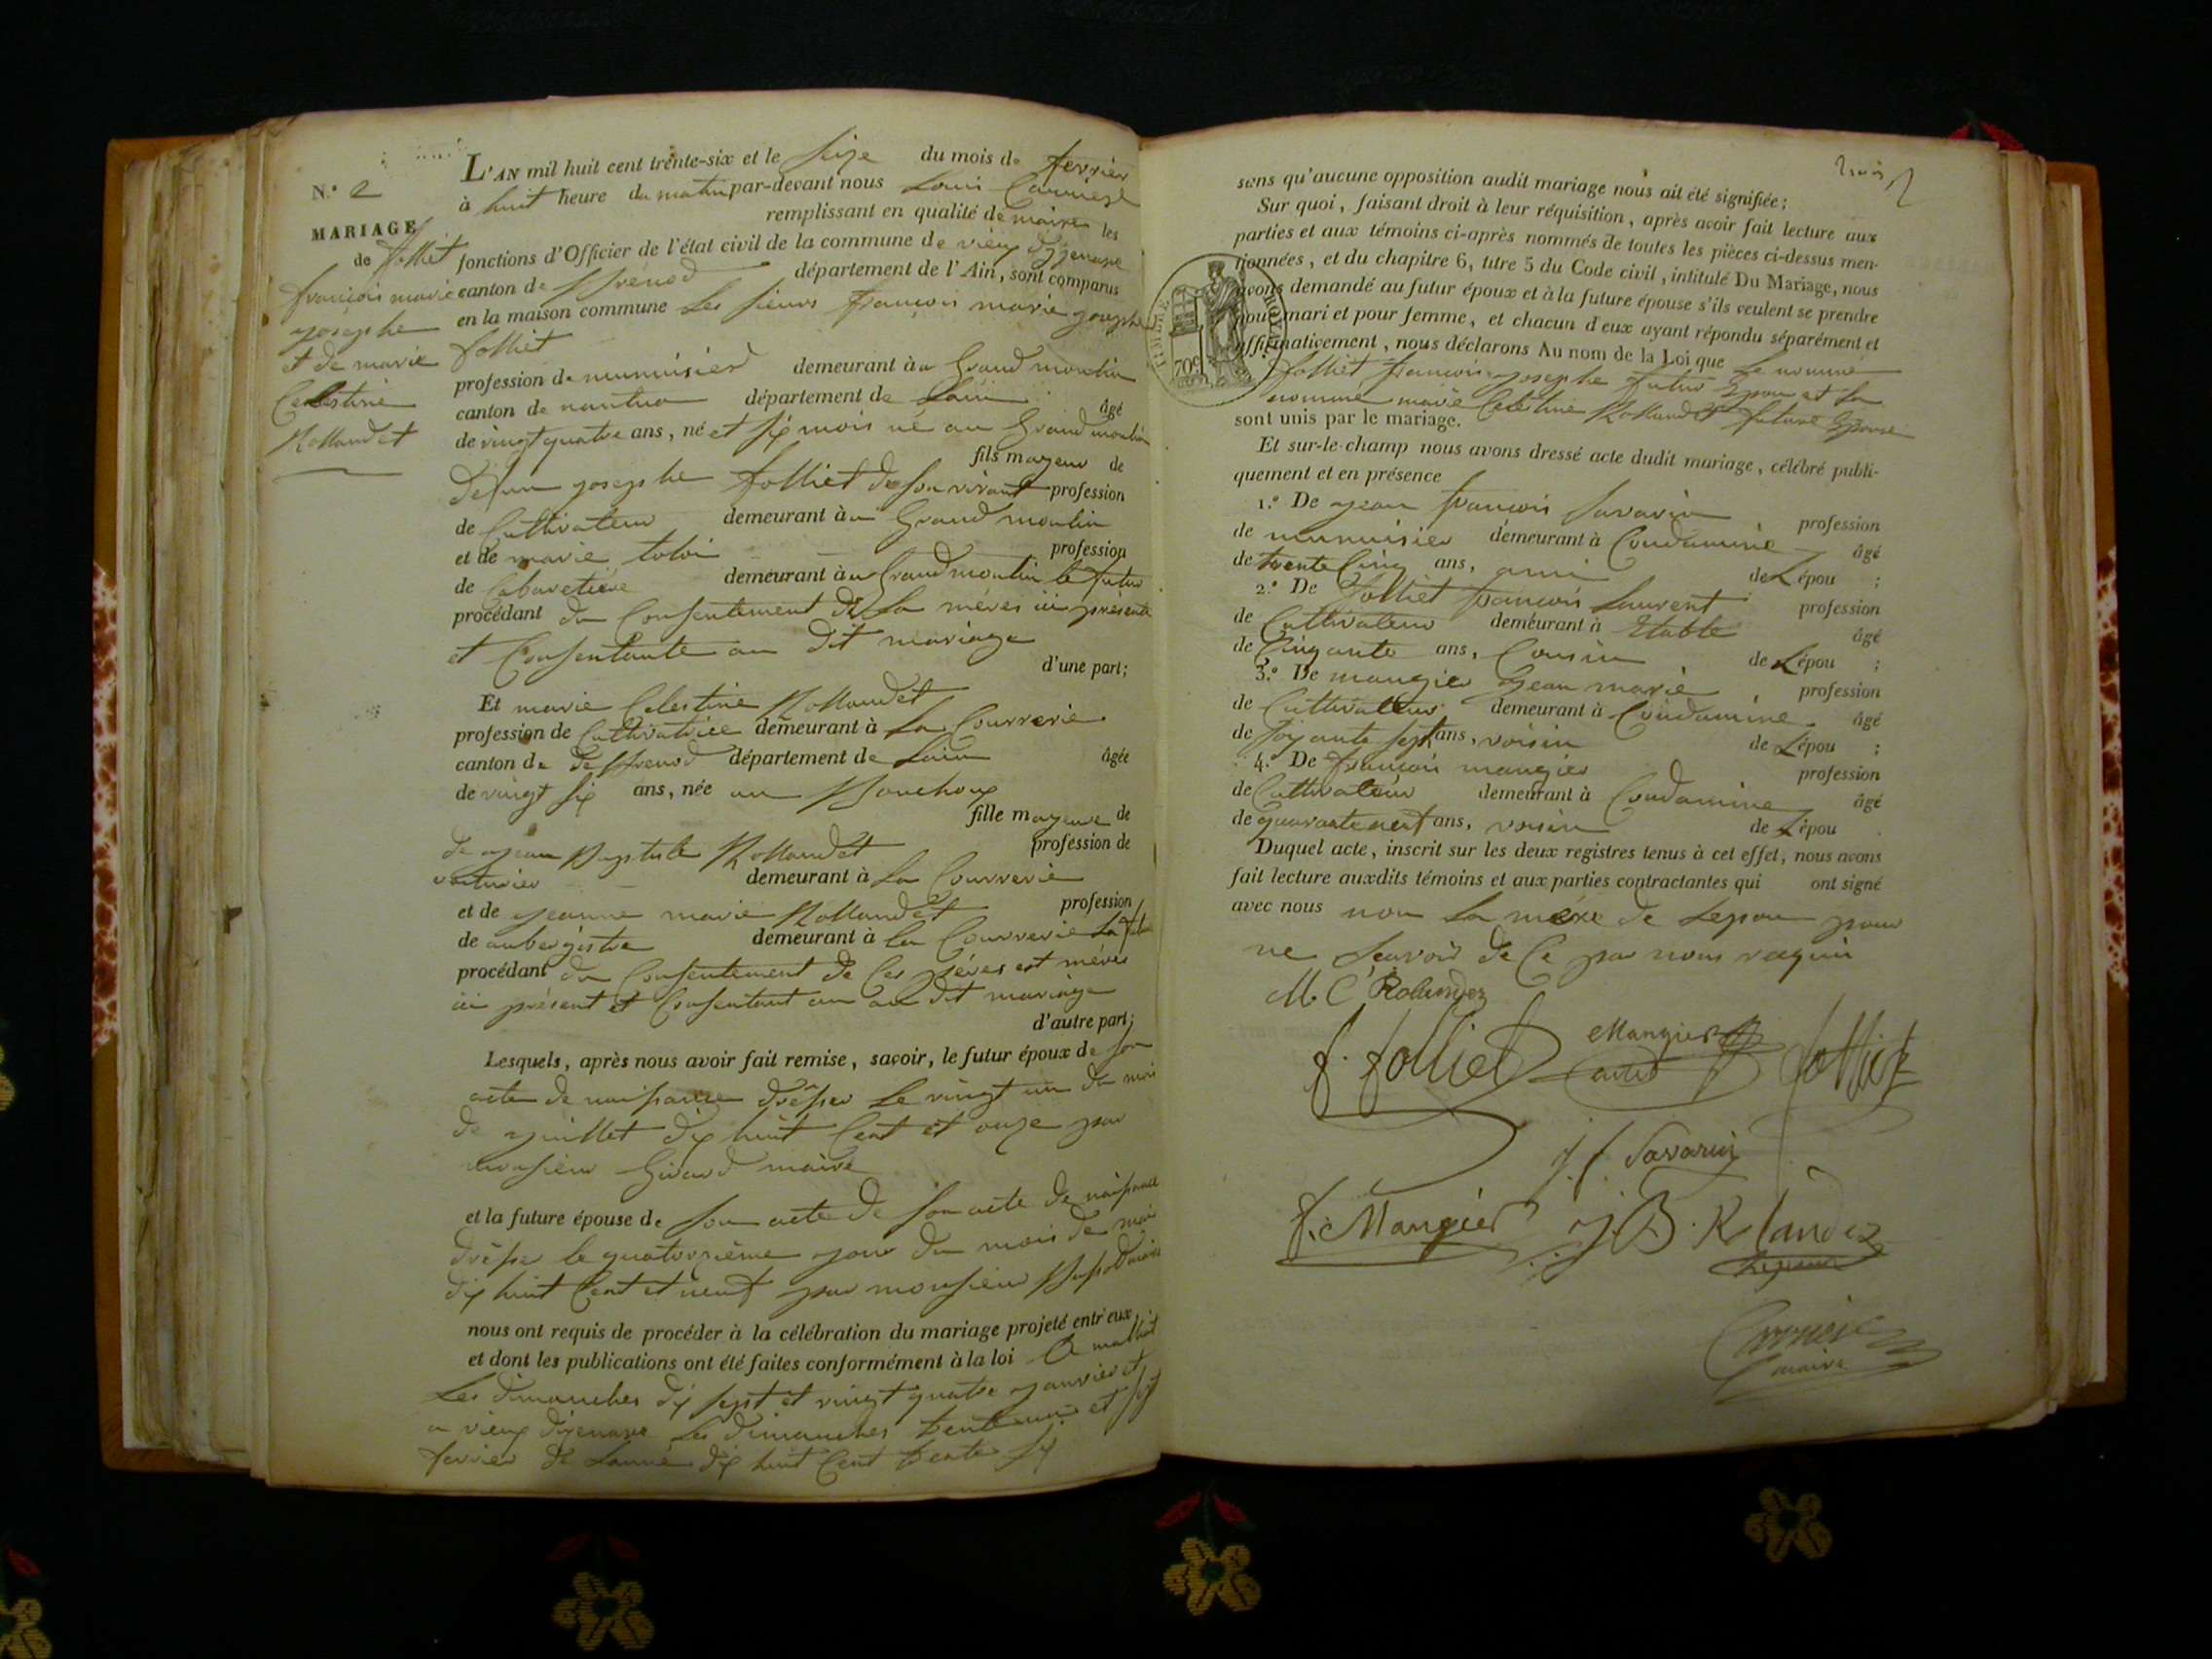 N.° 2
MARIAGE
de folliet
françois marie
josephe
et de marie
Celestine
Rollandet
L'AN mil huit cent trente-six et le seize du mois de fevrier
à huit heure du matin par-devant nous Louis Carriese
remplissant en qualité de maire les
fonctions d'Officier de l'état civil de la commune de vieux dizenave
canton de Brénod département de l'Ain, sont comparus
en la maison commune Les sieurs françois marie josephe
folliet
profession de menuisier demeurant à au Grand moulin
canton de nantua département de Lain âgé
de vingt quatre ans, né et six mois né au Grand moulin
fils mayeur de
defun josephe folliet de son vivant profession
de Cultivateur demeurant à au Grand moulin
et de marie profession
de Cabaretière demeurant à au Grand moulin le futur
procédant du Consentement de sa méres ici présente
et Consentante au dit mariage
d'une part;
Et marie Celestine Rollandet
profession de Cultivatrice demeurant à La Courrerie
canton de de Brenod département de Lain âgée
de vingt six ans, née au Bouchoux
fille mayeure de
de jean Baptiste Rollandet profession de
voiturier demeurant à La Courrerie
et de jeanne marie Rollandet profession
de aubergiste demeurant à la Courrerie La future
procédant du Consentement de Ces péres et méres
ici présent et Consentant au au dit mariage
d'autre part;
Lesquels, après nous avoir fait remise, savoir, le futur époux de son
acte de naissance drésser Le vingt un du mois
de juillet dix huit Cent et onze par
monsieur Girard maire
et la future épouse de son acte de son acte de naissance
drésser le quatorzième jour du mois de mai
dix huit Cent et neuf par monsieur
nous ont requis de procéder à la célébration du mariage projeté entr'eux,
et dont les publications ont été faites conformément à la loi A
Les dimanches dix sept et vingt quatre janvier et
a vieux dizenave Les dimanches trente un et sept
fevrier de Lanné dix huit Cent trente six
trois
sans qu'aucune opposition audit mariage nous ait été signifiée;
Sur quoi, faisant droit à leur réquisition, après avoir fait lecture aux
parties et aux témoins ci-après nommés de toutes les pièces ci-dessus men-
tionnées, et du chapitre 6, titre 5 du Code civil, intitulé Du Mariage, nous
avons demandé au futur époux et à la future épouse s'ils veulent se prendre
pour mari et pour femme, et chacun d'eux ayant répondu séparément et
affirmativement, nous déclarons Au nom de la Loi que Le nomme
folliet françois josephe futur Epoux et La
nomme marie Celestine Rollandet future Epouse
sont unis par le mariage.
TIMBRE ROYAL
70c
Et sur-le-champ nous avons dressé acte dudit mariage, célébré publi-
quement et en présence
1.° De jean françois Savarin profession
de menuisier demeurant à Condamine âgé
de trente Cinq ans, ami de Lépou ;
2.° De folliet françois Laurent profession
de Cultivateur demeurant à Etable âgé
de Cinqante ans, Cousin de Lépou ;
3.° De mangier jean marie profession
de Cultivateur demeurant à Condamine âgé
de soixante sept ans, voisin de Lépou ;
4.° De françois mangier profession
de Cultivateur demeurant à Condamine âgé
de quarante neuf ans, voisin de Lépou
Duquel acte, inscrit sur les deux registres tenus à cet effet, nous avons
fait lecture auxdits témoins et aux parties contractantes qui ont signé
avec nous non La mére de Lepou pour
ne scavoir de Ce par nous requis
M. C Rolandez
f. folliet Mangier folliet
J. f Savarin
f. Mangier J B. Rolandez
Carriese
maire